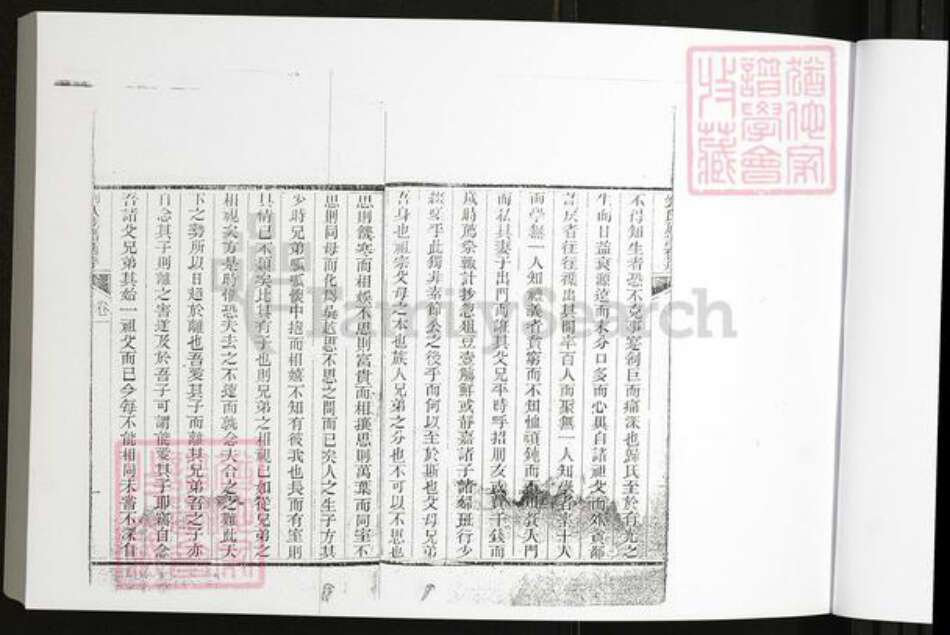 不得知生者恐不克事寔創巨而痛深也歸氏至於有光之
生而日益衰源遠而末分口多而心異自諸祖父而外貪鄙
詐戾者往往襍出其間率百人而聚無一人知學者率十人
而學無一人知禮義者貧窮而不知恤頑鈍而不知教入門
而私其妻子出門而誑其父兄平時呼招朋友或費千錢而
歲時薦祭輒計抄忽俎豆壺觴鮮或靜嘉諸子諸婦班行少
綴嗟乎此獨非素節公之後乎而何以至於斯也父母兄弟
吾身也祖宗父母之本也族人兄弟之分也不可以不思也
思則饑寒而相娛不思則富貴而相攘思則萬葉而同室不
思則同母而化為吳越思不思之間而已矣人之生子方其
少時兄弟呱呱懷中抱而相嬉不知有彼我也長而有室則
其情已不類矣比其有子也則兄弟之相視已如從兄弟之
相視矣方是時惟恐夫去之不速而孰念夫合之之難此天
下之勢所以日趨於離也吾愛其子而離其兄弟吾之子亦
自念其子則離之害遂及於吾子可謂能愛其子耶竊自念
吾諸父兄弟其始一祖父而已今每不能相同未嘗不深自
卷一
FamilySearch
猶他家
譜學會
收藏